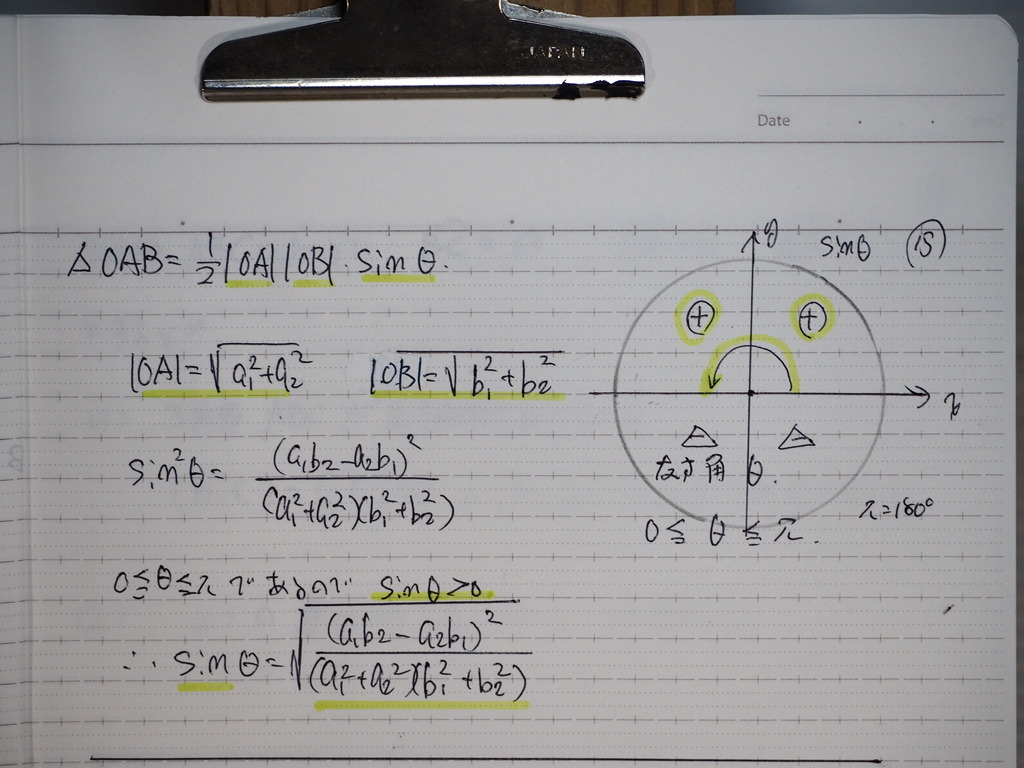 JAPAN
Date
△OAB = 1/2 |OA| |OB|・sin θ.
|OA| = √(a₁²+a₂²) |OB| = √(b₁²+b₂²)
sin²θ = (a₁b₂-a₂b₁)² / (a₁²+a₂²)(b₁²+b₂²)
0 ≦ θ ≦ π で あるので sinθ > 0
∴ sin θ = √((a₁b₂-a₂b₁)² / (a₁²+a₂²)(b₁²+b₂²))
y sinθ ⑮
⊕ ⊕
x
なす角 θ.
π=180°
0 ≦ θ ≦ π.